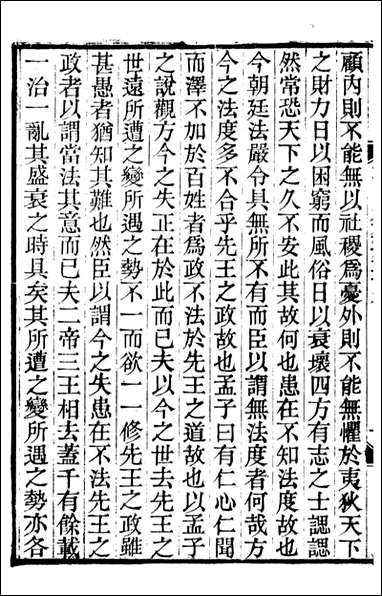 顧內則不能無以社稷爲憂外則不能無懼於夷狄天下
之財力日以困窮而風俗日以衰壞四方有志之士諰諰
然常恐天下之久不安此其故何也患在不知法度故也
今朝廷法嚴令具無所不有而臣以謂無法度者何哉方
今之法度多不合乎先王之政故也孟子曰有仁心仁聞
而澤不加於百姓者爲政不法於先王之道故也以孟子
之說觀方今之失正在於此而已夫以今之世去先王之
世遠所遭之變所遇之勢不一而欲一一修先王之政雖
甚愚者猶知其難也然臣以謂今之失患在不法先王之
政者以謂當法其意而已夫二帝三王相去蓋千有餘載
一治一亂其盛衰之時具矣其所遭之變所遇之勢亦各